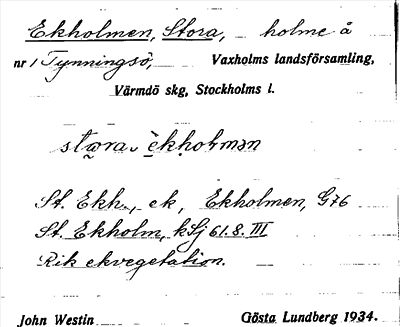 Ekholmen, Stora, holme å
nr 1 Tynningsö, Vaxholms landsförsamling,
Värmdö skg, Stockholms l.
stora ekholmən
St. Ekh., ek, Ekholmen, G76
St. Ekholm, kSj 61.8.III
Rik ekvegetation.
John Westin Gösta Lundberg 1934.